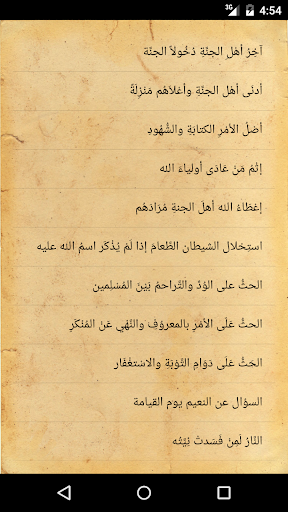 3G 4:54
آخِرُ أهْلِ الجنَّةِ دُخُولاً الجنَّة
أدنَى أهْلِ الجنَّةِ وأعْلاَهم مَنْزِلَةً
أصْلُ الأمْرِ الكتابَةِ والشُّهُودِ
إثْمُ مَنْ عَادَى أولياءَ الله
إعْطَاءُ الله أهلَ الجنةِ مُرَادَهُم
استِحْلال الشيطان الطَّعام إذا لَمْ يُذْكَر اسمُ الله عليه
الحثُّ على الوُدِّ والتَّراحمِ بَيْنَ المُسْلِمين
الحثُّ عَلَى الأمْرِ بالمعروفِ والنَّهْي عَنِ المُنْكَرِ
الحَثُّ عَلَى دَوَامِ التَّوْبَةِ والاسْتِغْفَار
السؤال عن النعيم يوم القيامة
النَّارُ لَمِنْ فَسَدتْ نِيَّتُه